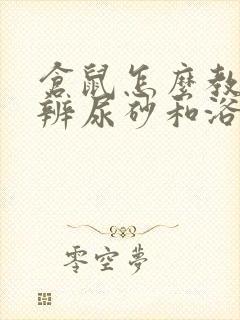 倉鼠怎麼教
辨尿砂和浴
零空夢